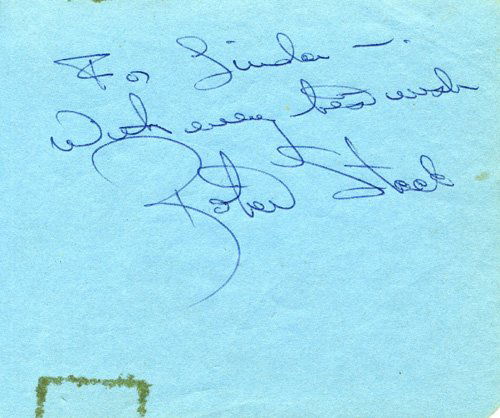 For Linda —.
With every best wish
Robert Stack